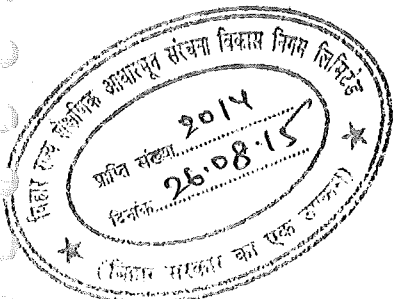 बिहार राज्य शैक्षणिक आधारभूत संरचना विकास निगम लिमिटेड
प्राप्ति संख्या 2014
दिनांक 26.08.15
(बिहार सरकार का एक उपक्रम)